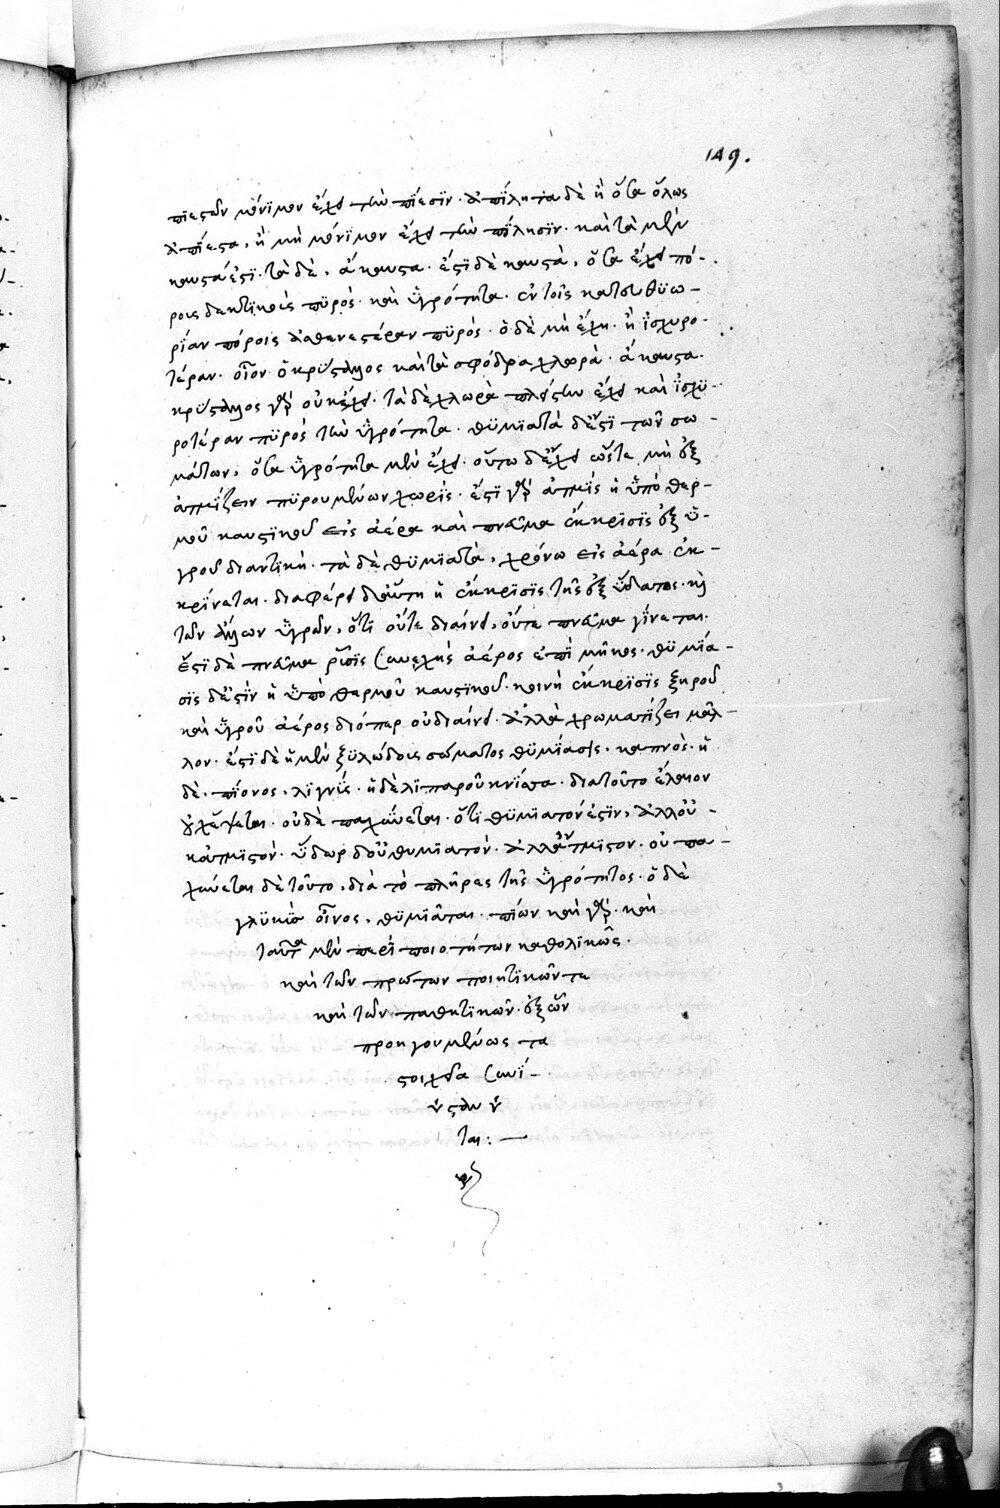 149.
πιεστῶν μόνιμον ἔχει τὴν πίεσιν. ἀπίλητα δὲ ἢ ὅσα ὅλως
ἀπίεστα, ἢ μὴ μόνιμον ἔχει τὴν πίλησιν. καὶ τὰ μὲν
καυστά ἐστι. τὰ δὲ, ἄκαυστα. ἔστι δὲ καυστὰ, ὅσα ἔχει πό-
ροις δεκτικοὺς πυρὸς. καὶ ὑγρότητα. ἐν τοῖς κατ' εὐθυω-
ρίαν πόροις ἀσθενεστέραν πυρὸς. ὁ δὲ μὴ ἔχη. ἢ ἰσχυρο-
τέραν. οἷον ὁ κρύσταλλος καὶ τὰ σφόδρα χλωρὰ. ἄκαυστα.
κρύσταλλος γὰρ οὐκ ἔχει. τὰ δὲ χλωρὰ πλείστην ἔχει καὶ ἰσχυ-
ροτέραν πυρὸς τὴν ὑγρότητα. θυμιατὰ δ' ἐστὶ τῶν σω-
μάτων, ὅσα ὑγρότητα μὲν ἔχει. οὕτω δ' ἔχει ὥστε μὴ ἐξ
ἀτμίζειν πυρουμένων χωρὶς. ἔστι γὰρ ἀτμὶς ἡ ὑπὸ θερ-
μοῦ καυστικοῦ εἰς ἀέρα καὶ πνεῦμα ἔκκρισις ἐξ ὑ-
γροῦ διαντικὴ. τὰ δὲ θυμιατὰ, χρόνω εἰς ἀέρα ἐκ-
κρίνεται. διαφέρει δ' αὕτη ἡ ἔκκρισις τῆς ἐξ ὕδατος. κὶ
τῶν ἄλλων ὑγρῶν, ὅτι οὔτε διαίνει, οὔτε πνεῦμα γίνεται.
ἔστι δὲ πνεῦμα ῥύσις συνεχὴς ἀέρος ἐπὶ μῆκος. θυμία-
σις δ' ἐστὶν ἡ ὑπὸ θερμοῦ καυστικοῦ. κοινὴ ἔκκρισις ξηροῦ
καὶ ὑγροῦ ἀέρος διόπερ οὐ διαίνει. ἀλλὰ χρωματίζει μᾶλ-
λον. ἔστι δὲ ἡ μὲν ξυλώδους σώματος θυμίασις. καπνὸς. ἡ
δὲ. πίονος. λιγνύς. ἡ δὲ λιπαροῦ κνίσσα. διὰ τοῦτο ἔλαιον
οὐχ ἕψεται. οὐδὲ παχύνεται. ὅτι θυμιατόν ἐστιν, ἀλλ' οὐ-
κ ἀτμιστόν. ὕδωρ δ' οὐ θυμιατὸν. ἀλλ' ἀτμιστον. οὐ πα-
χύνεται δὲ τοῦτο, διὰ τὸ πλῆρες τῆς ὑγρότητος. ὁ δὲ
γλυκὺς οἶνος, θυμιᾶται. πίων καὶ γὰρ. καὶ
ταῦτα μὲν περὶ ποιοτήτων καθολικῶς.
καὶ τῶν πρώτων ποιητικῶν τε
καὶ τῶν παθητικῶν. ἐξ ὧν
προηγουμένως τὰ
στοιχεῖα συνί-